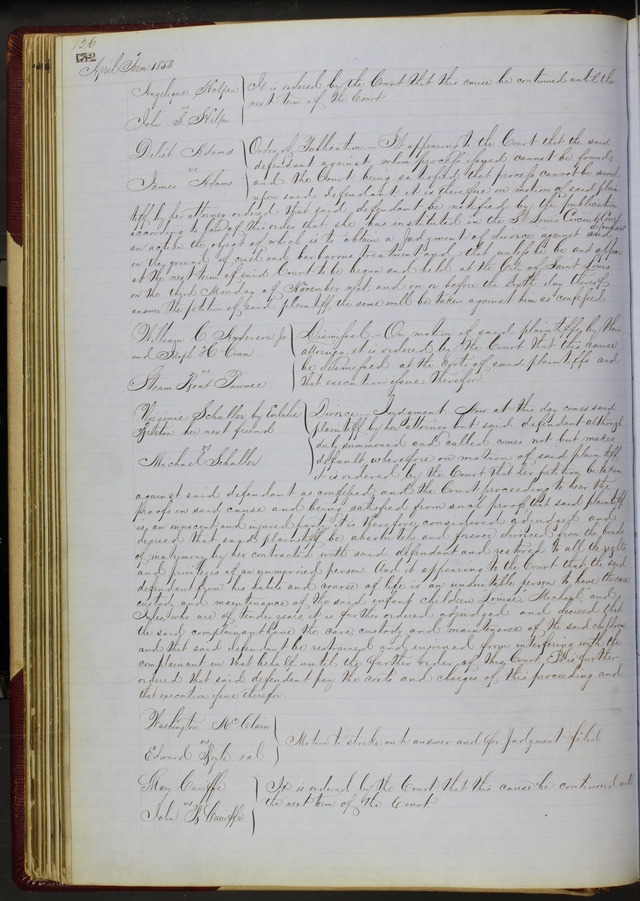 156
April Term 1858
Angelique Halpin
vs
John S Halpin
It is ordered by the Court that this cause be continued until the
next term of the Court
Delia Adams
vs
James Adams
Order of Publication - It appearing to the Court that the said
defendant against whom process issued cannot be found
and the Court being satisfied that process cannot be served
upon said defendant it is therefore on motion of said plain
tiff by her attorney ordered that said defendant be notified by the publication
according to law of this order that she has instituted in the St Louis Circuit Court
an action the object of which is to obtain a Judgment of divorce against said defendant
on the ground of cruel and barbarous treatment and that unless he be and appear
at the next term of said Court to be begun and held at the City of Saint Louis
on the third Monday of November next and on or before the sixth day thereof
answer the petition of said plaintiff the same will be taken against him as confessed
William C Anderson Jr
and H Conn
vs
Steam Boat Pawnee
Dismissed - On motion of said plaintiffs by their
attorney it is ordered by the Court that this cause
be dismissed at the costs of said plaintiffs and
that execution issue therefor
Virginie Schaller by Eulalie
her next friend
vs
Michael Schaller
Divorce - Judgment Now at this day comes said
plaintiff by her attorney but said defendant although
duly summoned and called comes not but makes
default, wherefore on motion of said plaintiff,
it is ordered by the Court that her petition be taken
against said defendant as confessed and the Court proceeding to hear the
proofs in said cause and being satisfied from such proof that said plaintiff
is an innocent and injured party, it is therefore considered adjudged and
decreed that said plaintiff be absolutely and forever divorced from the bonds
of matrimony by her contracted with said defendant and restored to all the rights
and privileges of an unmarried person. And it appearing to the Court that the said
defendant from his habits and course of life is an unsuitable person to have the care
custody and maintenance of the said infant children Louise, Michael and
who are of tender years it is further ordered adjudged and decreed that
the said complainant have the care custody and maintenance of the said children
and that said defendant be restrained and enjoined from interfering with the
complainant in that behalf until the further order of this Court. It is further
ordered that said defendant pay the costs and charges of this proceeding and
that execution issue therefor.
Washington McClain
vs
Edward Hoyle et al
Motion to strike out answer and for Judgment filed
Mary Cunliffe
vs
John B Cunliffe
It is ordered by the Court that this cause be continued until
the next term of the Court